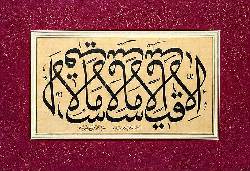 الا قیلا سلاما سلاما